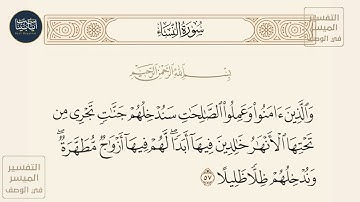 سُورَةُ النِّسَاءِ
التفسير
الميسر
في الوصف
بِسْمِ اللَّهِ الرَّحْمَٰنِ الرَّحِيمِ
وَٱلَّذِينَ ءَامَنُوا۟ وَعَمِلُوا۟ ٱلصَّٰلِحَٰتِ سَنُدْخِلُهُمْ جَنَّٰتٍ تَجْرِى مِن
تَحْتِهَا ٱلْأَنْهَٰرُ خَٰلِدِينَ فِيهَآ أَبَدًا ۖ لَّهُمْ فِيهَآ أَزْوَٰجٌ مُّطَهَّرَةٌ ۖ
وَنُدْخِلُهُمْ ظِلًّا ظَلِيلًا ٥٧
التفسير
الميسر
في الوصف